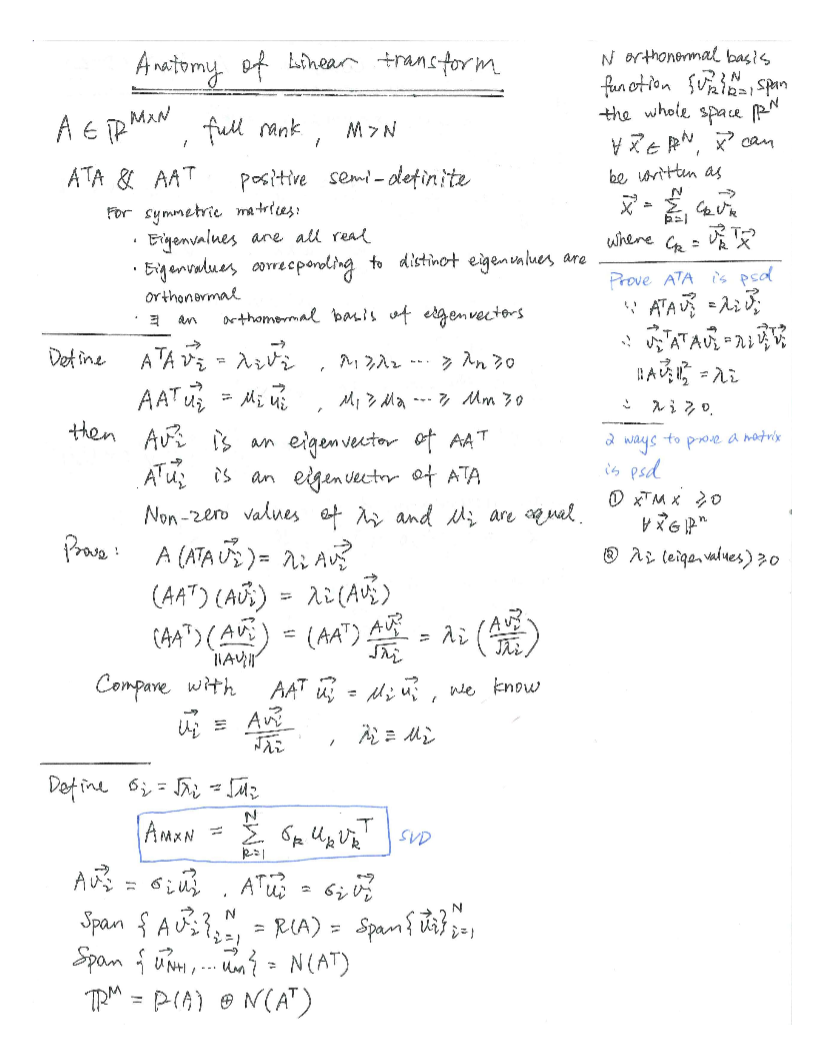 Anatomy of Linear transform
A ∈ ℝ^{M×N}, full rank, M>N
AᵀA & AAᵀ positive semi-definite
For symmetric matrices:
· Eigenvalues are all real
· Eigenvalues corresponding to distinct eigenvalues are
orthonormal
· ∃ an orthonormal basis of eigenvectors
Define AᵀA v⃗_i = λ_i v⃗_i , λ_1 ≥ λ_2 ... ≥ λ_n ≥ 0
AAᵀ u⃗_i = μ_i u⃗_i , μ_1 ≥ μ_2 ... ≥ μ_m ≥ 0
then Av⃗_i is an eigenvector of AAᵀ
Aᵀu⃗_i is an eigenvector of AᵀA
Non-zero values of λ_i and μ_i are equal.
Prove: A(AᵀA v⃗_i) = λ_i A v⃗_i
(AAᵀ)(Av⃗_i) = λ_i (Av⃗_i)
(AAᵀ)(Av⃗_i / ||Av_i||) = (AAᵀ) Av⃗_i / √λ_i = λ_i (Av⃗_i / √λ_i)
Compare with AAᵀ u⃗_i = μ_i u⃗_i, we know
u⃗_i ≡ Av⃗_i / √λ_i , λ_i ≡ μ_i
Define σ_i = √λ_i = √μ_i
A_{M×N} = Σ_{k=1}^{N} σ_k u_k v_kᵀ SVD
Av⃗_i = σ_i u⃗_i . Aᵀu⃗_i = σ_i v⃗_i
Span {Av⃗_i}_{i=1}^{N} = R(A) = Span{u⃗_i}_{i=1}^{N}
Span {u⃗_{N+1}, ... u⃗_m} = N(Aᵀ)
ℝ^M = R(A) ⊕ N(Aᵀ)
N orthonormal basis
function {v⃗_k}_{k=1}^{N} span
the whole space ℝ^N
∀ x⃗ ∈ ℝ^N, x⃗ can
be written as
x⃗ = Σ_{k=1}^{N} c_k v⃗_k
where c_k = v⃗_kᵀ x⃗
Prove AᵀA is psd
∵ AᵀA v⃗_i = λ_i v⃗_i
∴ v⃗_iᵀAᵀA v⃗_i = λ_i v⃗_iᵀ v⃗_i
||Av⃗_i||_2^2 = λ_i
∴ λ_i ≥ 0.
2 ways to prove a matrix
is psd
① xᵀMx ≥ 0
∀ x⃗ ∈ ℝ^n
② λ_i (eigenvalues) ≥ 0